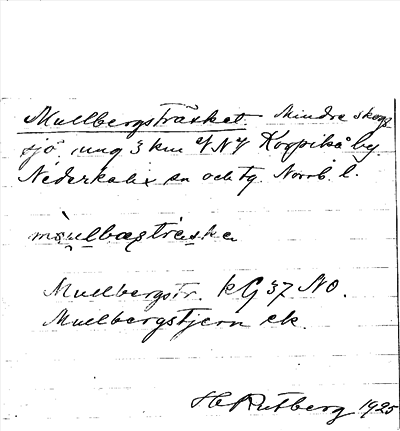 Mullbergsträsket. Mindre skogs
sjö, ung 3 km NV Korpikå by
Nederkalix sn och tg. Norrb. l.
Mullbergstr. kG 37 NO.
Mullbergstjern ek.
H Rutberg 1925